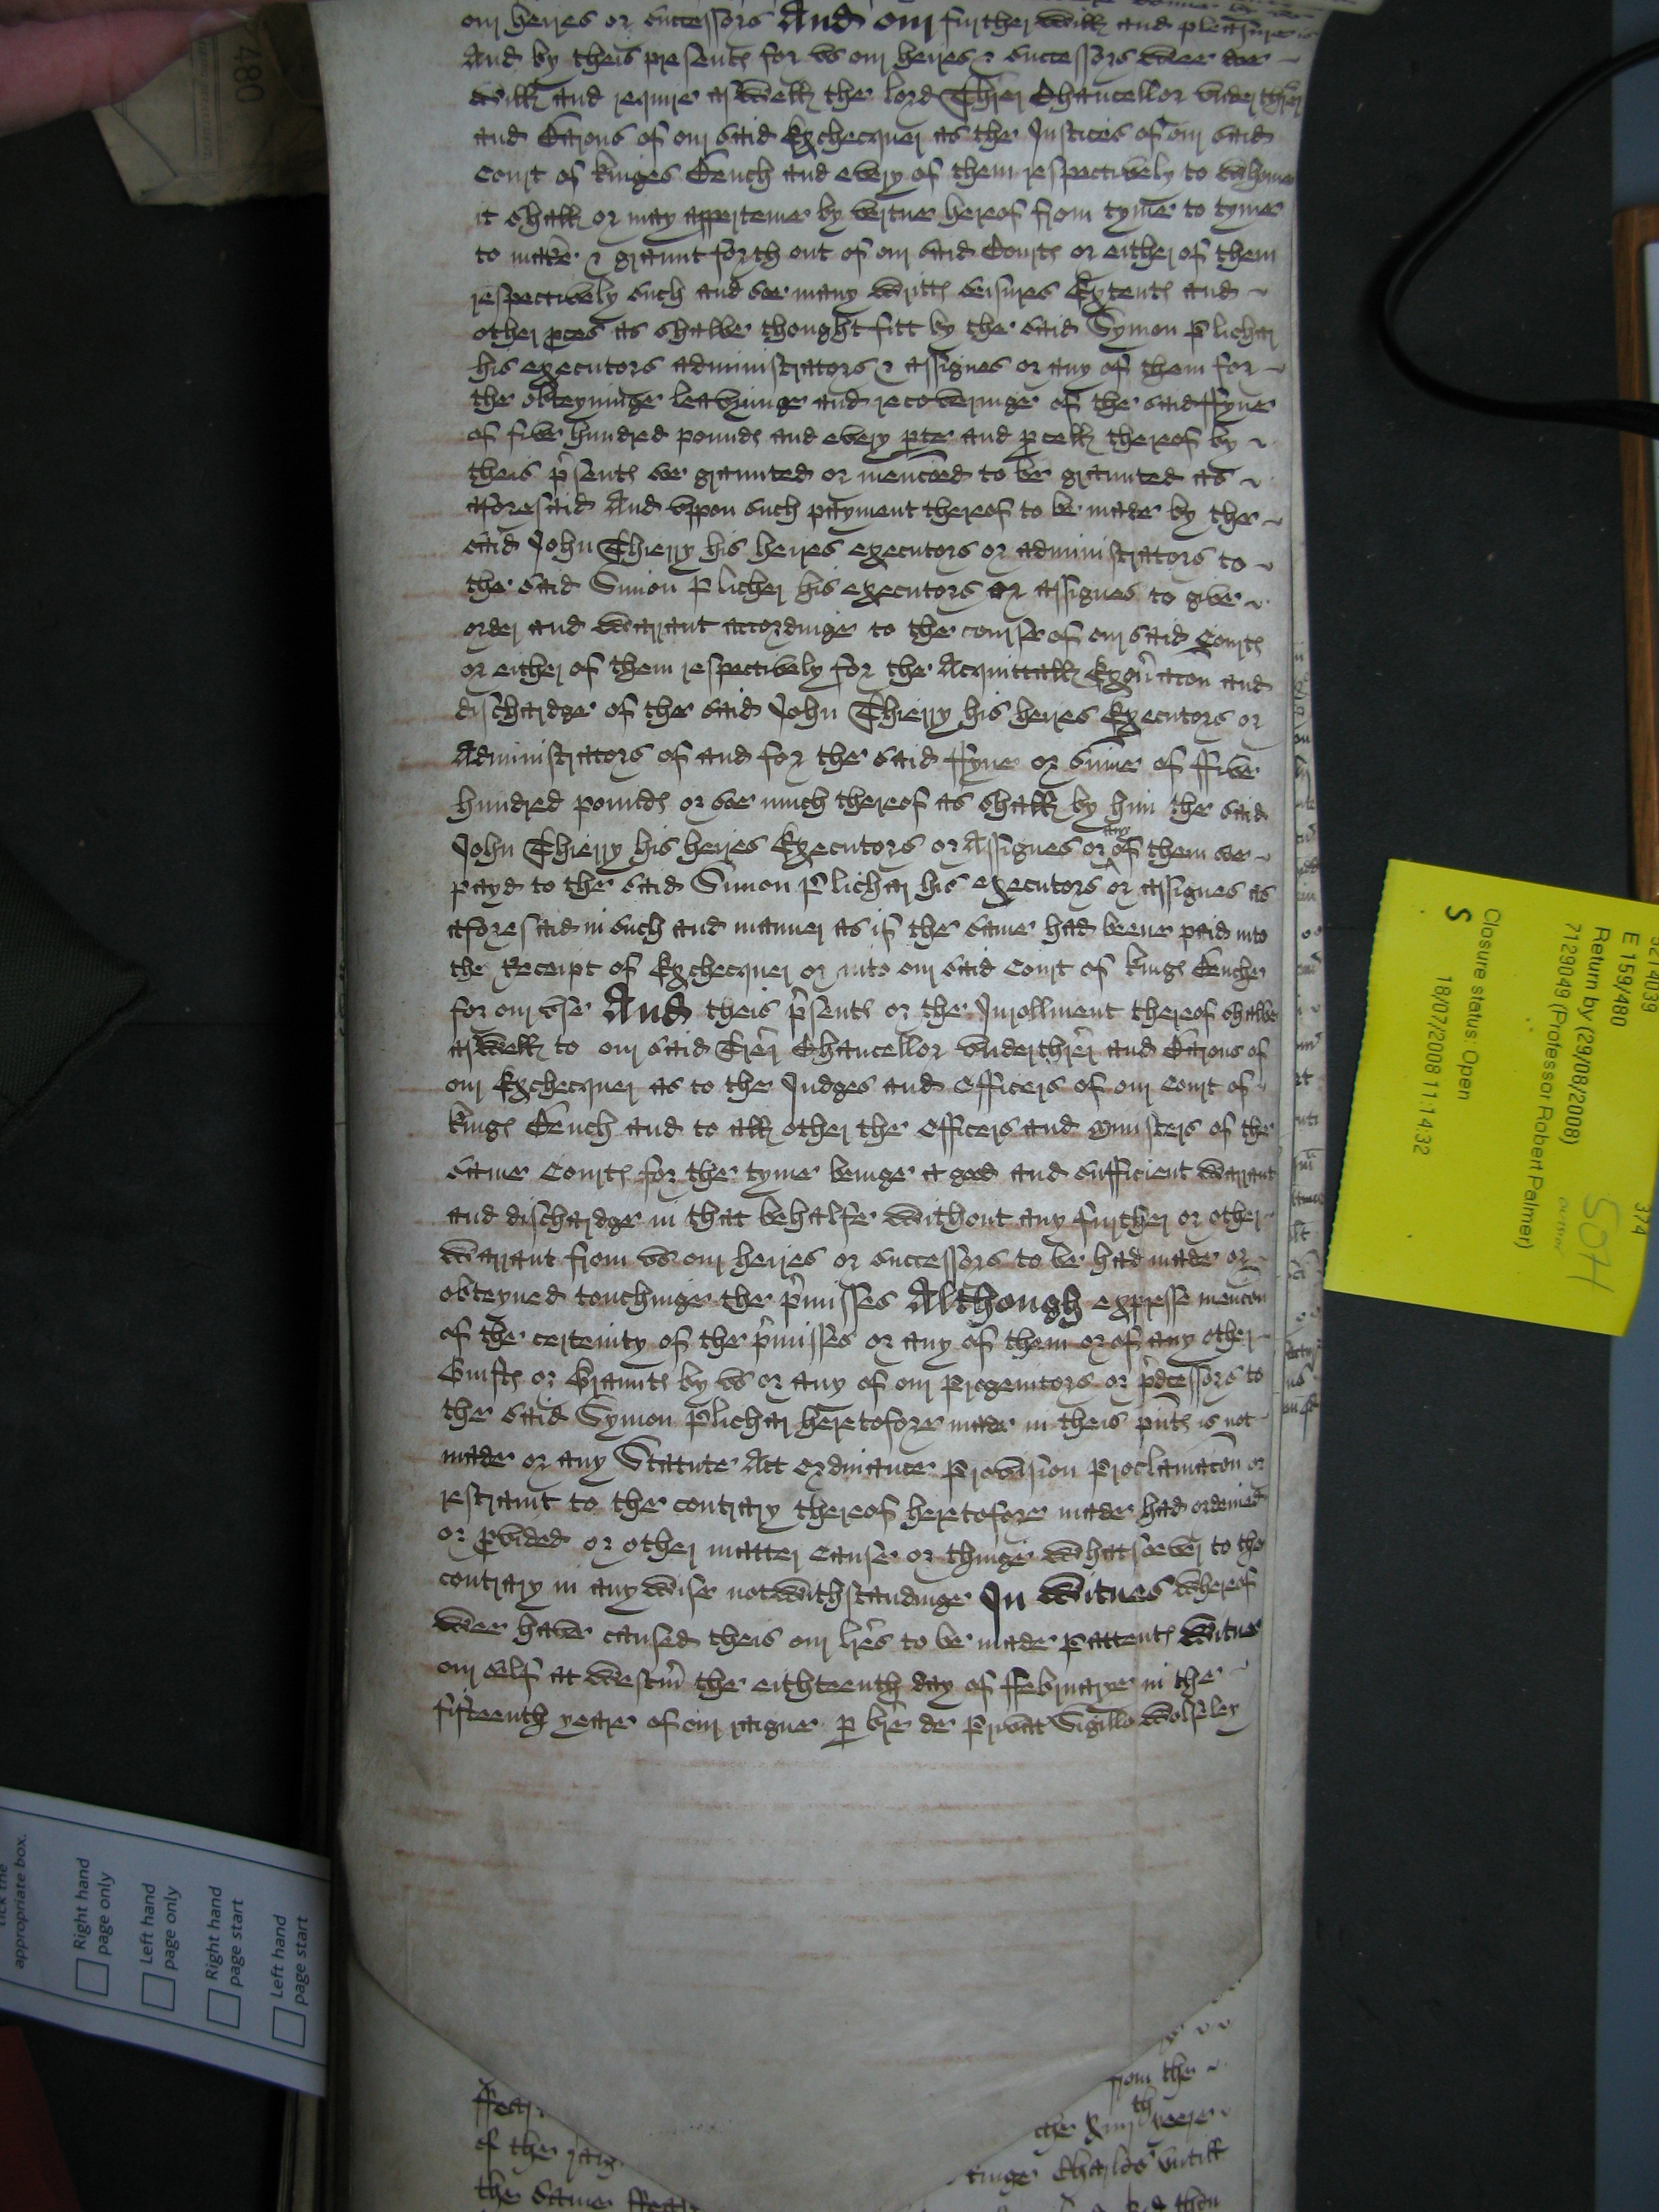 our heires or successors And our further will and pleasure is
And by theis presents for vs our heires & successors wee doe
will and require aswell the lord Thrēr Chancellor vnderthrēr
and Barons of our said Exchecquer as the Justices of our said
Court of kinges Bench and every of them respectively to whome
it shall or may apperteine by vertue hereof from tyme to tyme
to make & graunt forth out of our said Courts or either of them
respectively such and soe many writts seisures Extents and
other pces as shalbe thought fitt by the said Symon Plicher
his executors administrators & assignes or any of them for
the obteyninge leavyinge and recoveringe of the said ffyne
of five hundred pounds and every pte and pcell thereof by
theis psents soe graunted or mencoed to be graunted as
aforesaid And vppon such payment thereof to be made by the
said John Thierry his heires executors or administrators to
the said Simon Plicher his executors or assignes to give
order and warrant accordinge to the course of our said Courts
or either of them respectively for the Acquittall Exon̄acon and
dischardge of the said John Thierry his heires Executors or
Administrators of and for the said ffyne or sume of ffive
hundred pounds or soe much thereof as shall by him the said
John Thierry his heires Executors or Assignes or any of them soe
payd to the said Simon Plicher his executors or assignes as
aforesaid in such and manner as if the same had beene paid into
the Receipt of Exchecquer or into our said Court of kings Benche
for our vse And theis psents or the Inrollment thereof shalbe
aswell to our said Thrēr Chancellor vnderthrēr and Barons of
our Exchecquer as to the Judges and Officers of our Court of
kings Bench and to all other the Officers and Ministers of the
same Courts for the tyme beinge a good and sufficient warrant
and dischardge in that behalfe without any further or other
warrant from vs our heires or successors to be had made or
obteyned touchinge the pmisses Although expresse mencon
of the certeinty of the pmisses or any of them or of any other
Guifts or Graunts by vs or any of our Progenitors or pdcessors to
the said Symon Plicher heretofore made in theis pnts is not
made or any Statute Act Ordinance Provision Proclamacon or
restraint to the contrary thereof heretofore made had ordeined
or pvided or other matter Cause or thinge whatsoever to the
contrary in any wise notwithstandinge In Witnes whereof
wee have caused theis our lr̄es to be made Pattents Witnes
our self at Westm̄ the eighteenth day of ffebruarye in the
fifteenth yeare of our raigne p br̄e de Privat Sigillo Wolseley
from the
of the raig
the xiiijth yeere
kinge Charles vntill
the same
480
appropriate box.
Right hand page only
Left hand page only
Right hand page start
Left hand page start
374
E 159/480
Return by (29/08/2008)
7129049 (Professor Robert Palmer)
Closure status: Open
S
18/07/2008 11:14:32